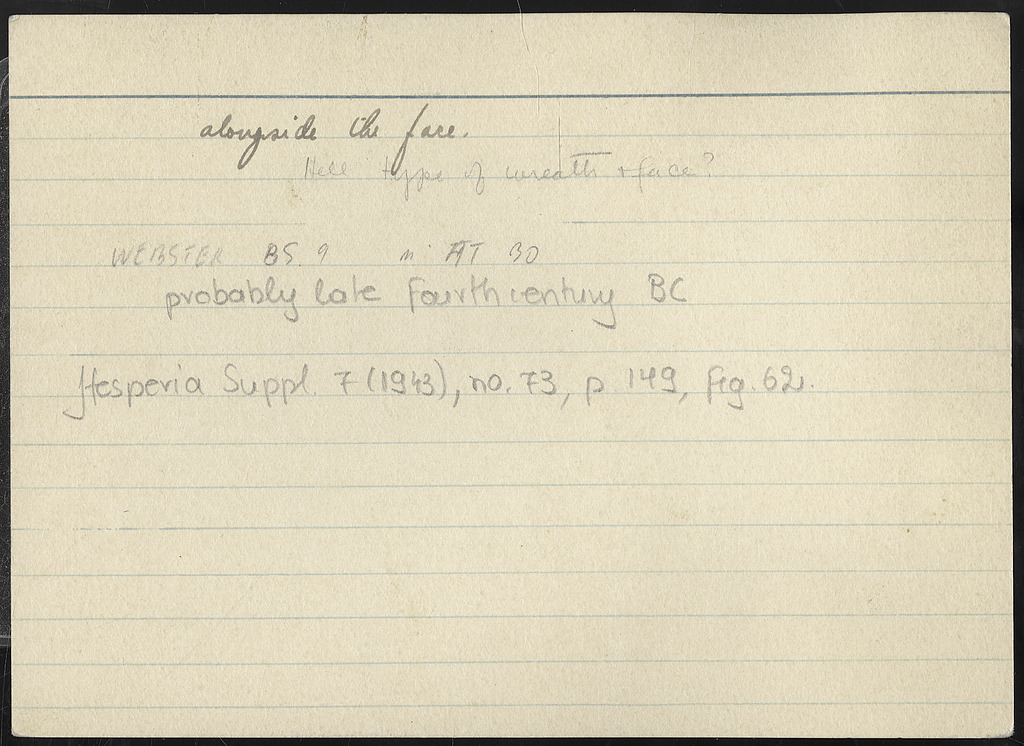 alongside the face.
Hell type of wreath + face?
WEBSTER BS. 9 AT 30
probably late fourth century BC
Hesperia Suppl. 7 (1943), no. 73, p 149, fig. 62.